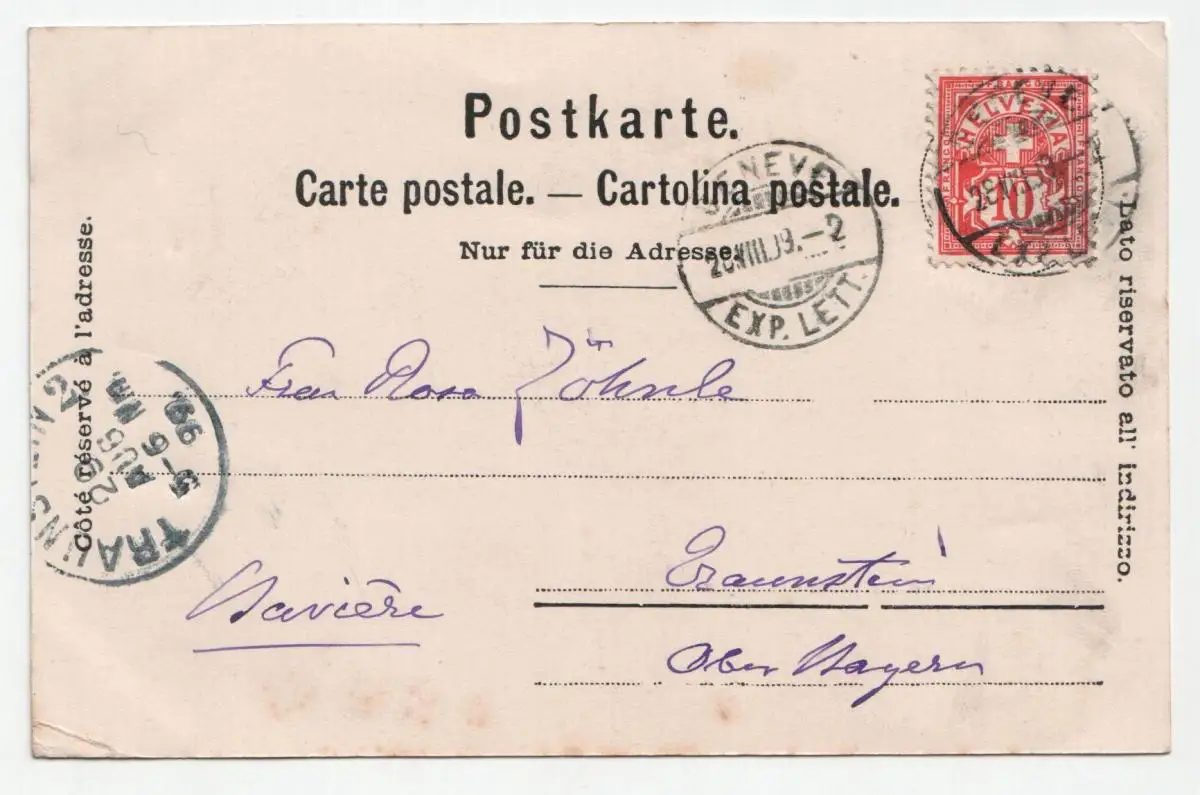 Postkarte.
Carte postale. — Cartolina postale.
Nur für die Adresse.
Côté réservé à l'adresse.
Lato riservato all' indirizzo.
FRANCO
HELVETIA
FRANCO
FRANCO
10
28 VIII
EXP. LETT.
GENEVE
28 VIII.99.–2
EXP. LETT.
TRAUNSTEIN 2
29 AUG NM
5–6 99.
Frau Rosa Zöhnle
Traunstein
Bavière
Ober Bayern